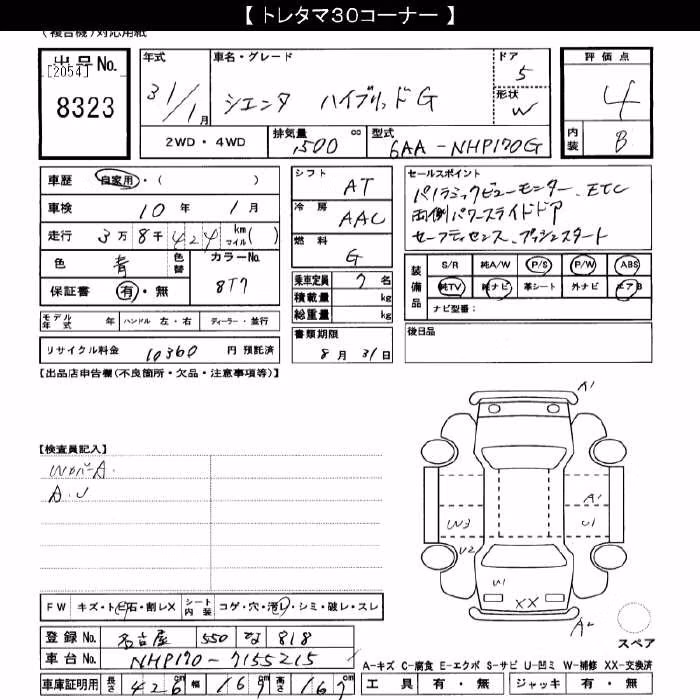 【 トレタマ30コーナー 】
(複合機)対応用紙
出品No. [2054] 8323
年式 31/1月
車名・グレード シエンタ ハイブリッドG
ドア 5
形状 W
評価点 4
内装 B
2WD・4WD
排気量 1500 cc
型式 6AA-NHP170G
車歴 自家用・( )
車検 10年 1月
走行 3万8千424 km マイル( )
色 青 色替
カラーNo. 8T7
保証書 有・無
シフト AT
冷房 AAC
燃料 G
乗車定員 7名
積載量 kg
総重量 kg
セールスポイント
パノラミックビューモニター、ETC
両側パワースライドドア
セーフティセンス、プッシュスタート
装備品 S/R 純A/W P/S P/W ABS
純TV 純ナビ 革シート 外ナビ エアB
ナビ型番:
モデル年式 年 ハンドル 左・右 ディーラー・並行
書類期限 8月31日
後日品
リサイクル料金 10360 円 預託済
【出品店申告欄(不良箇所・欠品・注意事項等)】
【検査員記入】
WカバーA.
A.U
A1
A1
W3
U1
U2
W1
XX
A2
スペア
FW キズ・ト石・割レX シート内装 コゲ・穴・汚レ・シミ・破レ・スレ
登録No. 名古屋 550 な 818
車台No. NHP170-7155215
A-キズ C-腐食 E-エクボ S-サビ U-凹ミ W-補修 XX-交換済
車庫証明用 長さ 426cm 幅 169cm 高さ 167cm
工具 有・無 ジャッキ 有・無